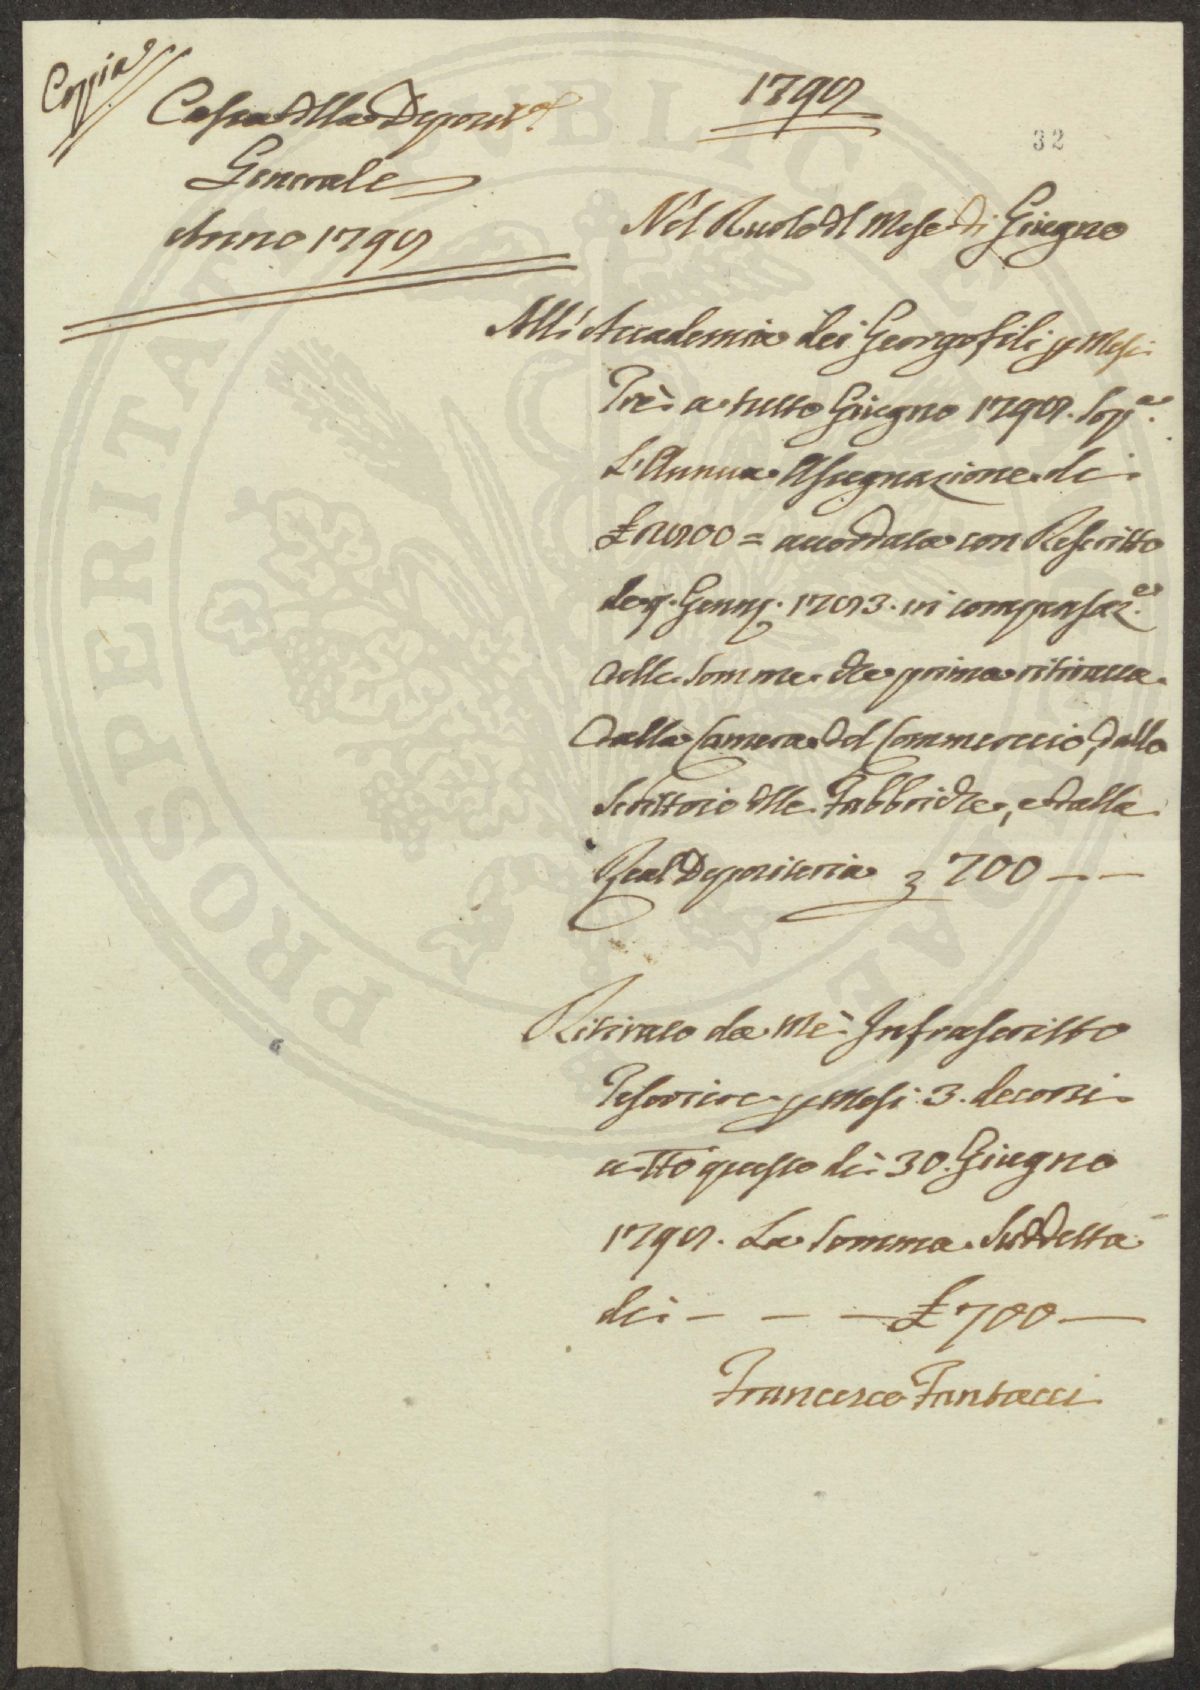 Coppia
Cassa della Deposit.a
Generale
Anno 1799
1799
32
Nel Ruolo del Mese di Giugno
All'Accademia dei Georgofili p Mesi
Trè a tutto Giugno 1799. Sop.a
L'Annua Assegnazione di
£ 2800 = accordata con Rescritto
de 9. Genn. 1793. in compensaz.e
delle Somme che prima ritirava
dalla Camera del Commercio, dallo
Scrittoio delle Fabbriche, e dalla
Real Depositeria £ 700 — —
Ritirato da Mè Infrascritto
Tesoriere p Mesi 3. decorsi
a tto questo dì 30. Giugno
1799. La Somma Suddetta
di — — — £ 700 —
Francesco Fantacci
PROSPERITATI PUBLICAE AUGENDAE